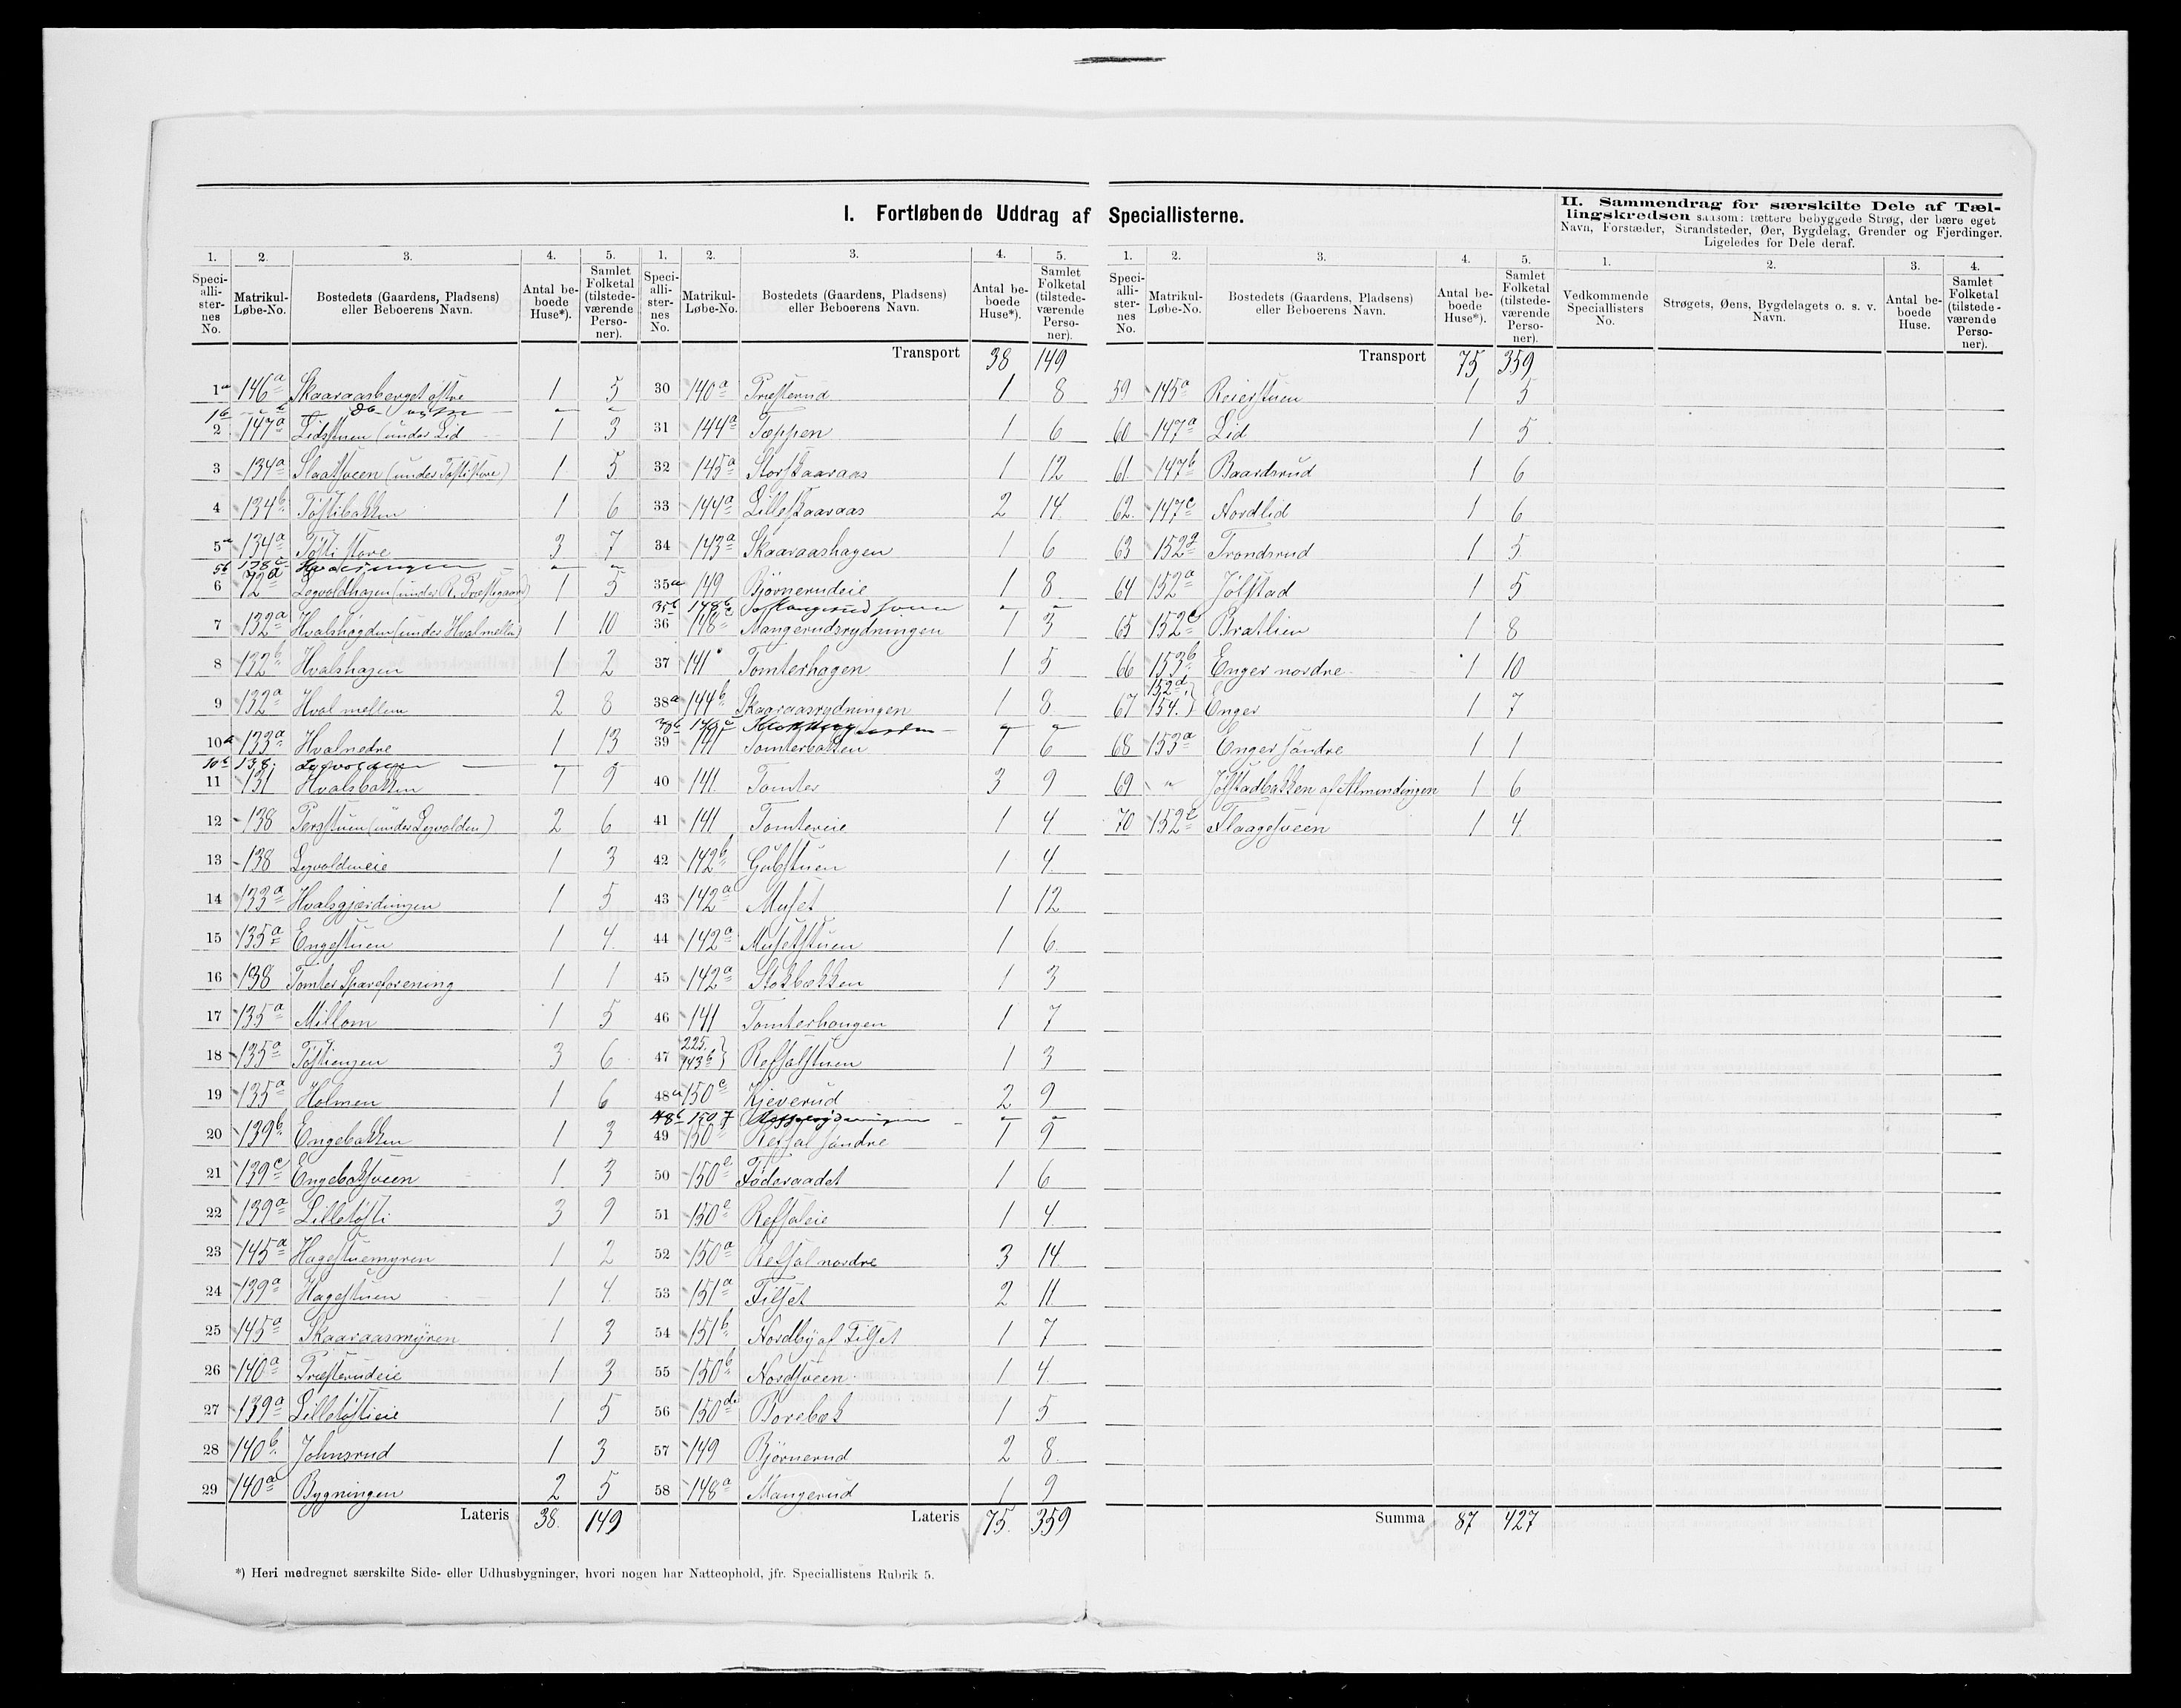 I. Fortløbende Uddrag af Speciallisterne.
II. Sammendrag for særskilte Dele af Tæl-
lingskredsen saasom: tættere bebyggede Strøg, der bære eget
Navn, Forstæder, Strandsteder, Øer, Bygdelag, Grender og Fjerdinger.
Ligeledes for Dele deraf.
1. 2. 3. 4. 5.
Speciallisternes No. Matrikul-Løbe-No. Bostedets (Gaardens, Pladsens) eller Beboerens Navn. Antal beboede Huse*). Samlet Folketal (tilstedeværende Personer).
1a 146a Skaaraasberget østre 1 5
1b
2 147a Lidstuen (under Lid 1 3
3 134a Slaatsveen (under Tøftistore) 1 5
4 134b Tøftibakken 1 6
5a 134a Tøfti store 3 7
5b 138c
6 72d Legvoldhagen (under R. Præstegaard) 1 5
7 132a Hvalshøgden (under Hval mellem) 1 10
8 132b Hvalshagen 1 2
9 132a Hval mellem 2 8
10a 133a Hval nedre 1 13
10b 138
11 131 Hvalsbakken 1 9
12 138 Persstuen (under Legvolden) 2 6
13 138 Legvoldeneie 1 3
14 133a Hvalsgjærdingen 1 5
15 135a Engestuen 1 4
16 138 Tomter Spareforening 1 1
17 135a Millom 1 5
18 135a Tøftiengen 3 6
19 135a Holmen 1 6
20 139b Engebakken 1 3
21 139c Engebaksveen 1 3
22 139a Lilletøfti 3 9
23 145a Hagestuemyren 1 2
24 139a Hagestuen 1 4
25 145a Skaaraasmyren 1 3
26 140a Præsterudeie 1 3
27 139a Lilletøftieie 1 5
28 140b Johnsrud 1 3
29 140a Bygningen 2 5
Lateris 38. 149
1. 2. 3. 4. 5.
Speciallisternes No. Matrikul-Løbe-No. Bostedets (Gaardens, Pladsens) eller Beboerens Navn. Antal beboede Huse*). Samlet Folketal (tilstedeværende Personer).
Transport 38 149
30 140a Præsterud 1 8
31 144a Tæppen 1 6
32 145a Storskaaraas 1 12
33 144a Lilleskaaraas 2 14
34 143a Skaaraashagen 1 6
35a 149 Bjørnerudeie 1 8
35b 148b
36 148c Mangerudsrydningen 1 3
37 141 Tomterhagen 1 5
38a 144b Skaaraasrydningen 1 8
38b
39 141 Tomterbakken 1 6
40 141 Tomter 3 9
41 141 Tomtereie 1 4
42 142b Gubstuen 1 4
43 142a Muset 1 12
44 142a Musetstuen 1 6
45 142a Stokbækken 1 3
46 141 Tomterhaugen 1 7
47 225. 143b Refsalstuen 1 3
48a 150c Kjeverud 2 9
48b 150f
49 150 Refsal søndre 1 9
50 150e Føderaadet 1 6
51 150e Refsaleie 1 4
52 150a Refsal nordre 3 14
53 151a Filset 2 11
54 151b Nordby af Filset 1 7
55 150b Nordsveen 1 4
56 150d Borebæk 1 5
57 149 Bjørnerud 2 8
58 148a Mangerud 1 9
Lateris 75. 359
1. 2. 3. 4. 5.
Speciallisternes No. Matrikul-Løbe-No. Bostedets (Gaardens, Pladsens) eller Beboerens Navn. Antal beboede Huse*). Samlet Folketal (tilstedeværende Personer).
Transport 75 359
59 145a Reierstuen 1 5
60 147a Lid 1 5
61 147b Baardsrud 1 6
62 147c Nordlid 1 6
63 152g Trondsrud 1 5
64 152a Jølstad 1 5
65 152c Bratlien 1 8
66 153b Enger nordre 1 10
67 152d, 154. Enger 1 7
68 153a Enger søndre 1 1
69 " Jølstadbakken af Almendingen 1 6
70 152e Flaagesveen 1 4
Summa 87 427
1. 2. 3. 4.
Vedkommende Speciallisters No. Strøgets, Øens, Bygdelagets o. s. v. Navn. Antal beboede Huse. Samlet Folketal (tilstedeværende Personer).
*) Heri medregnet særskilte Side- eller Udhusbygninger, hvori nogen har Natteophold, jfr. Speciallistens Rubrik 5.